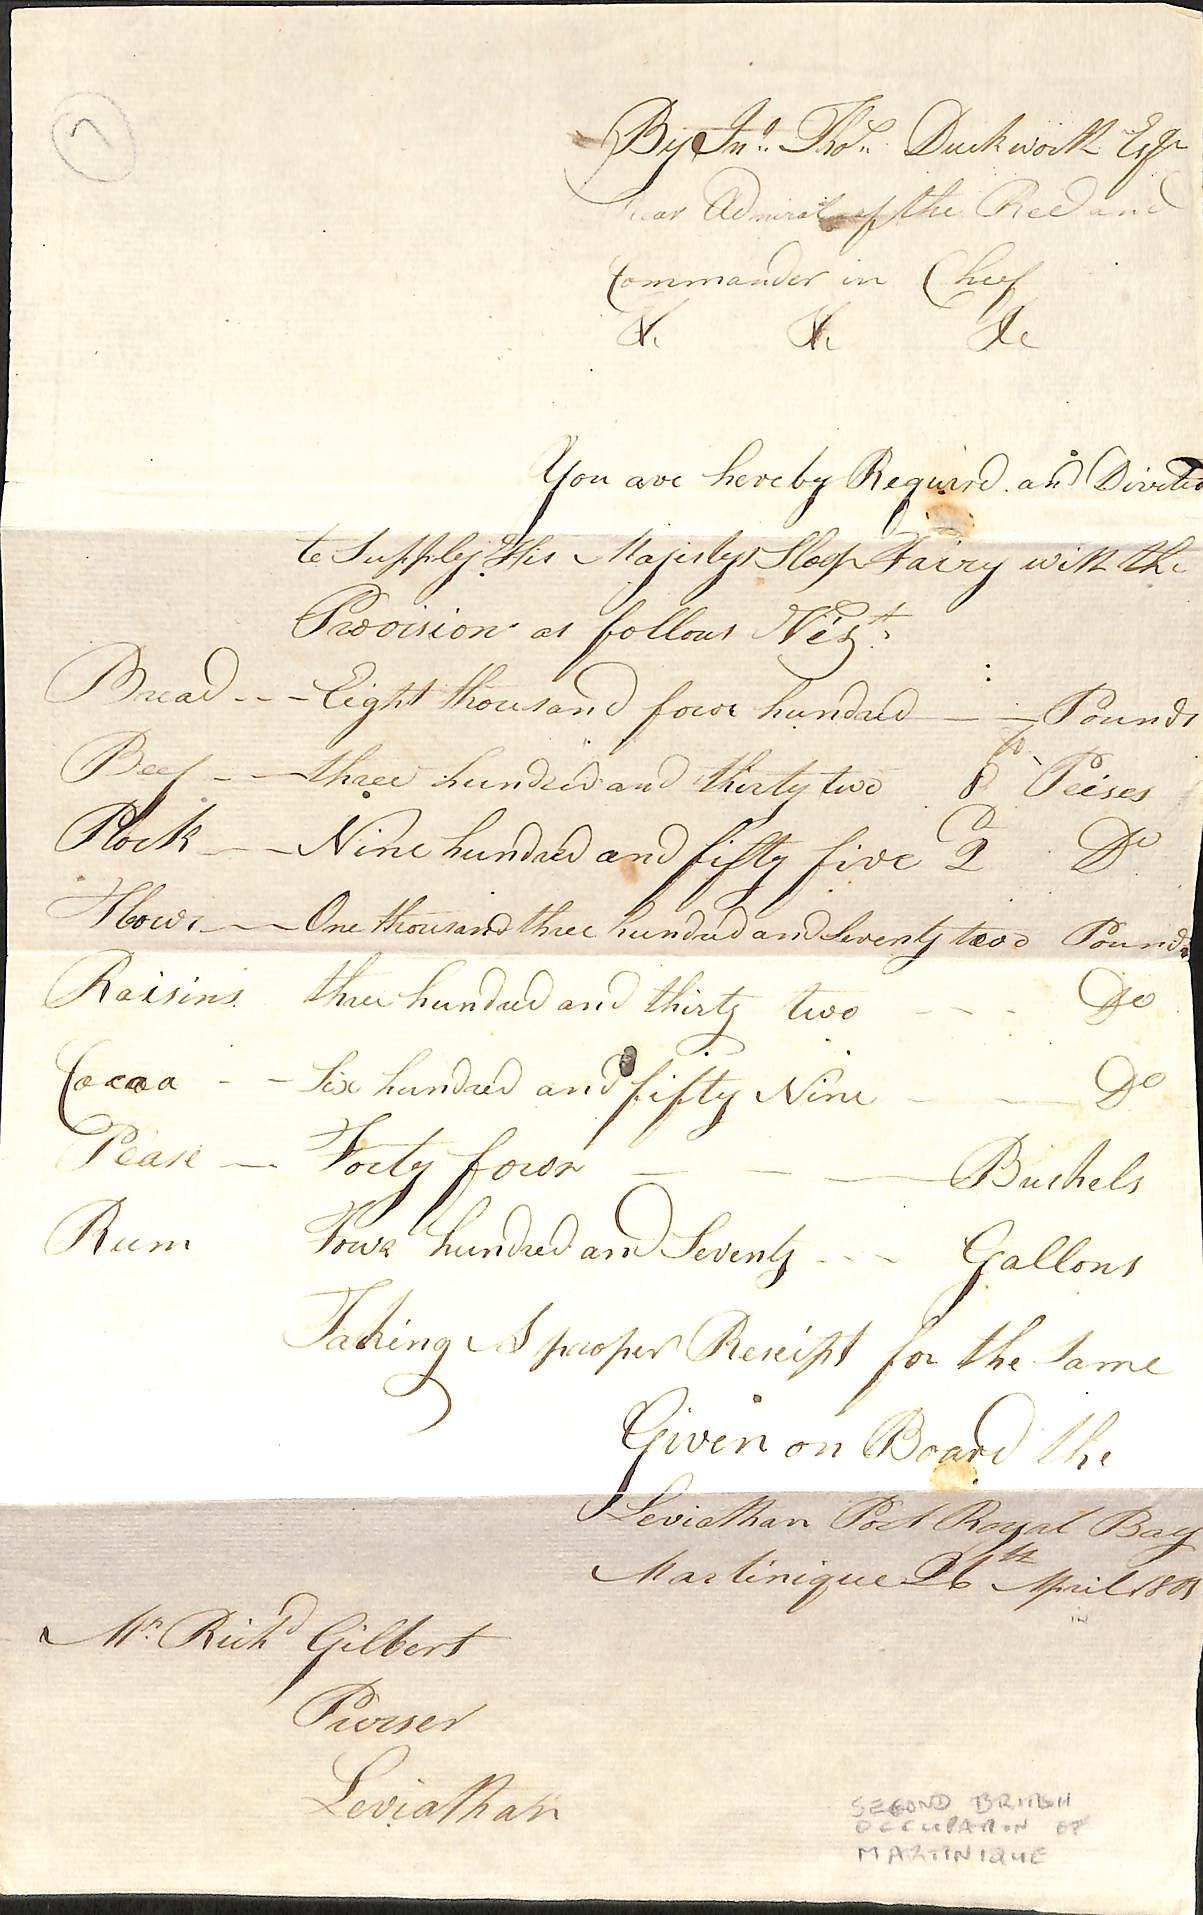 7
By Jno. Thos. Duckworth Esqr
Rear Admiral of the Red and
Commander in Cheif
&c &c &c
You are hereby Required and Directed
to Supply His Majestys Sloop Fairy with the
Provision as follows
Bread -- Eight thousand four hundred — Pounds
Beef -- three hundred and thirty two 8 lb Peises
Nine hundred and fifty five Do
Flour — One thousand three hundred and Seventy two Pounds
Raisins three hundred and thirty two --- Do
Cocoa -- Six hundred and fifty Nine — Do
Pease — Forty fowr — Bushels
Rum Four hundred and Seventy --- Gallons
Taking A proper Reseipt for the same
Given on Board the
Leviathan Port Royal Bay
Martinique 26th April 1801
Mr. Richd Gilbert
Purser
Leviathan
SECOND BRITISH
OCCUPATION OF
MARTINIQUE